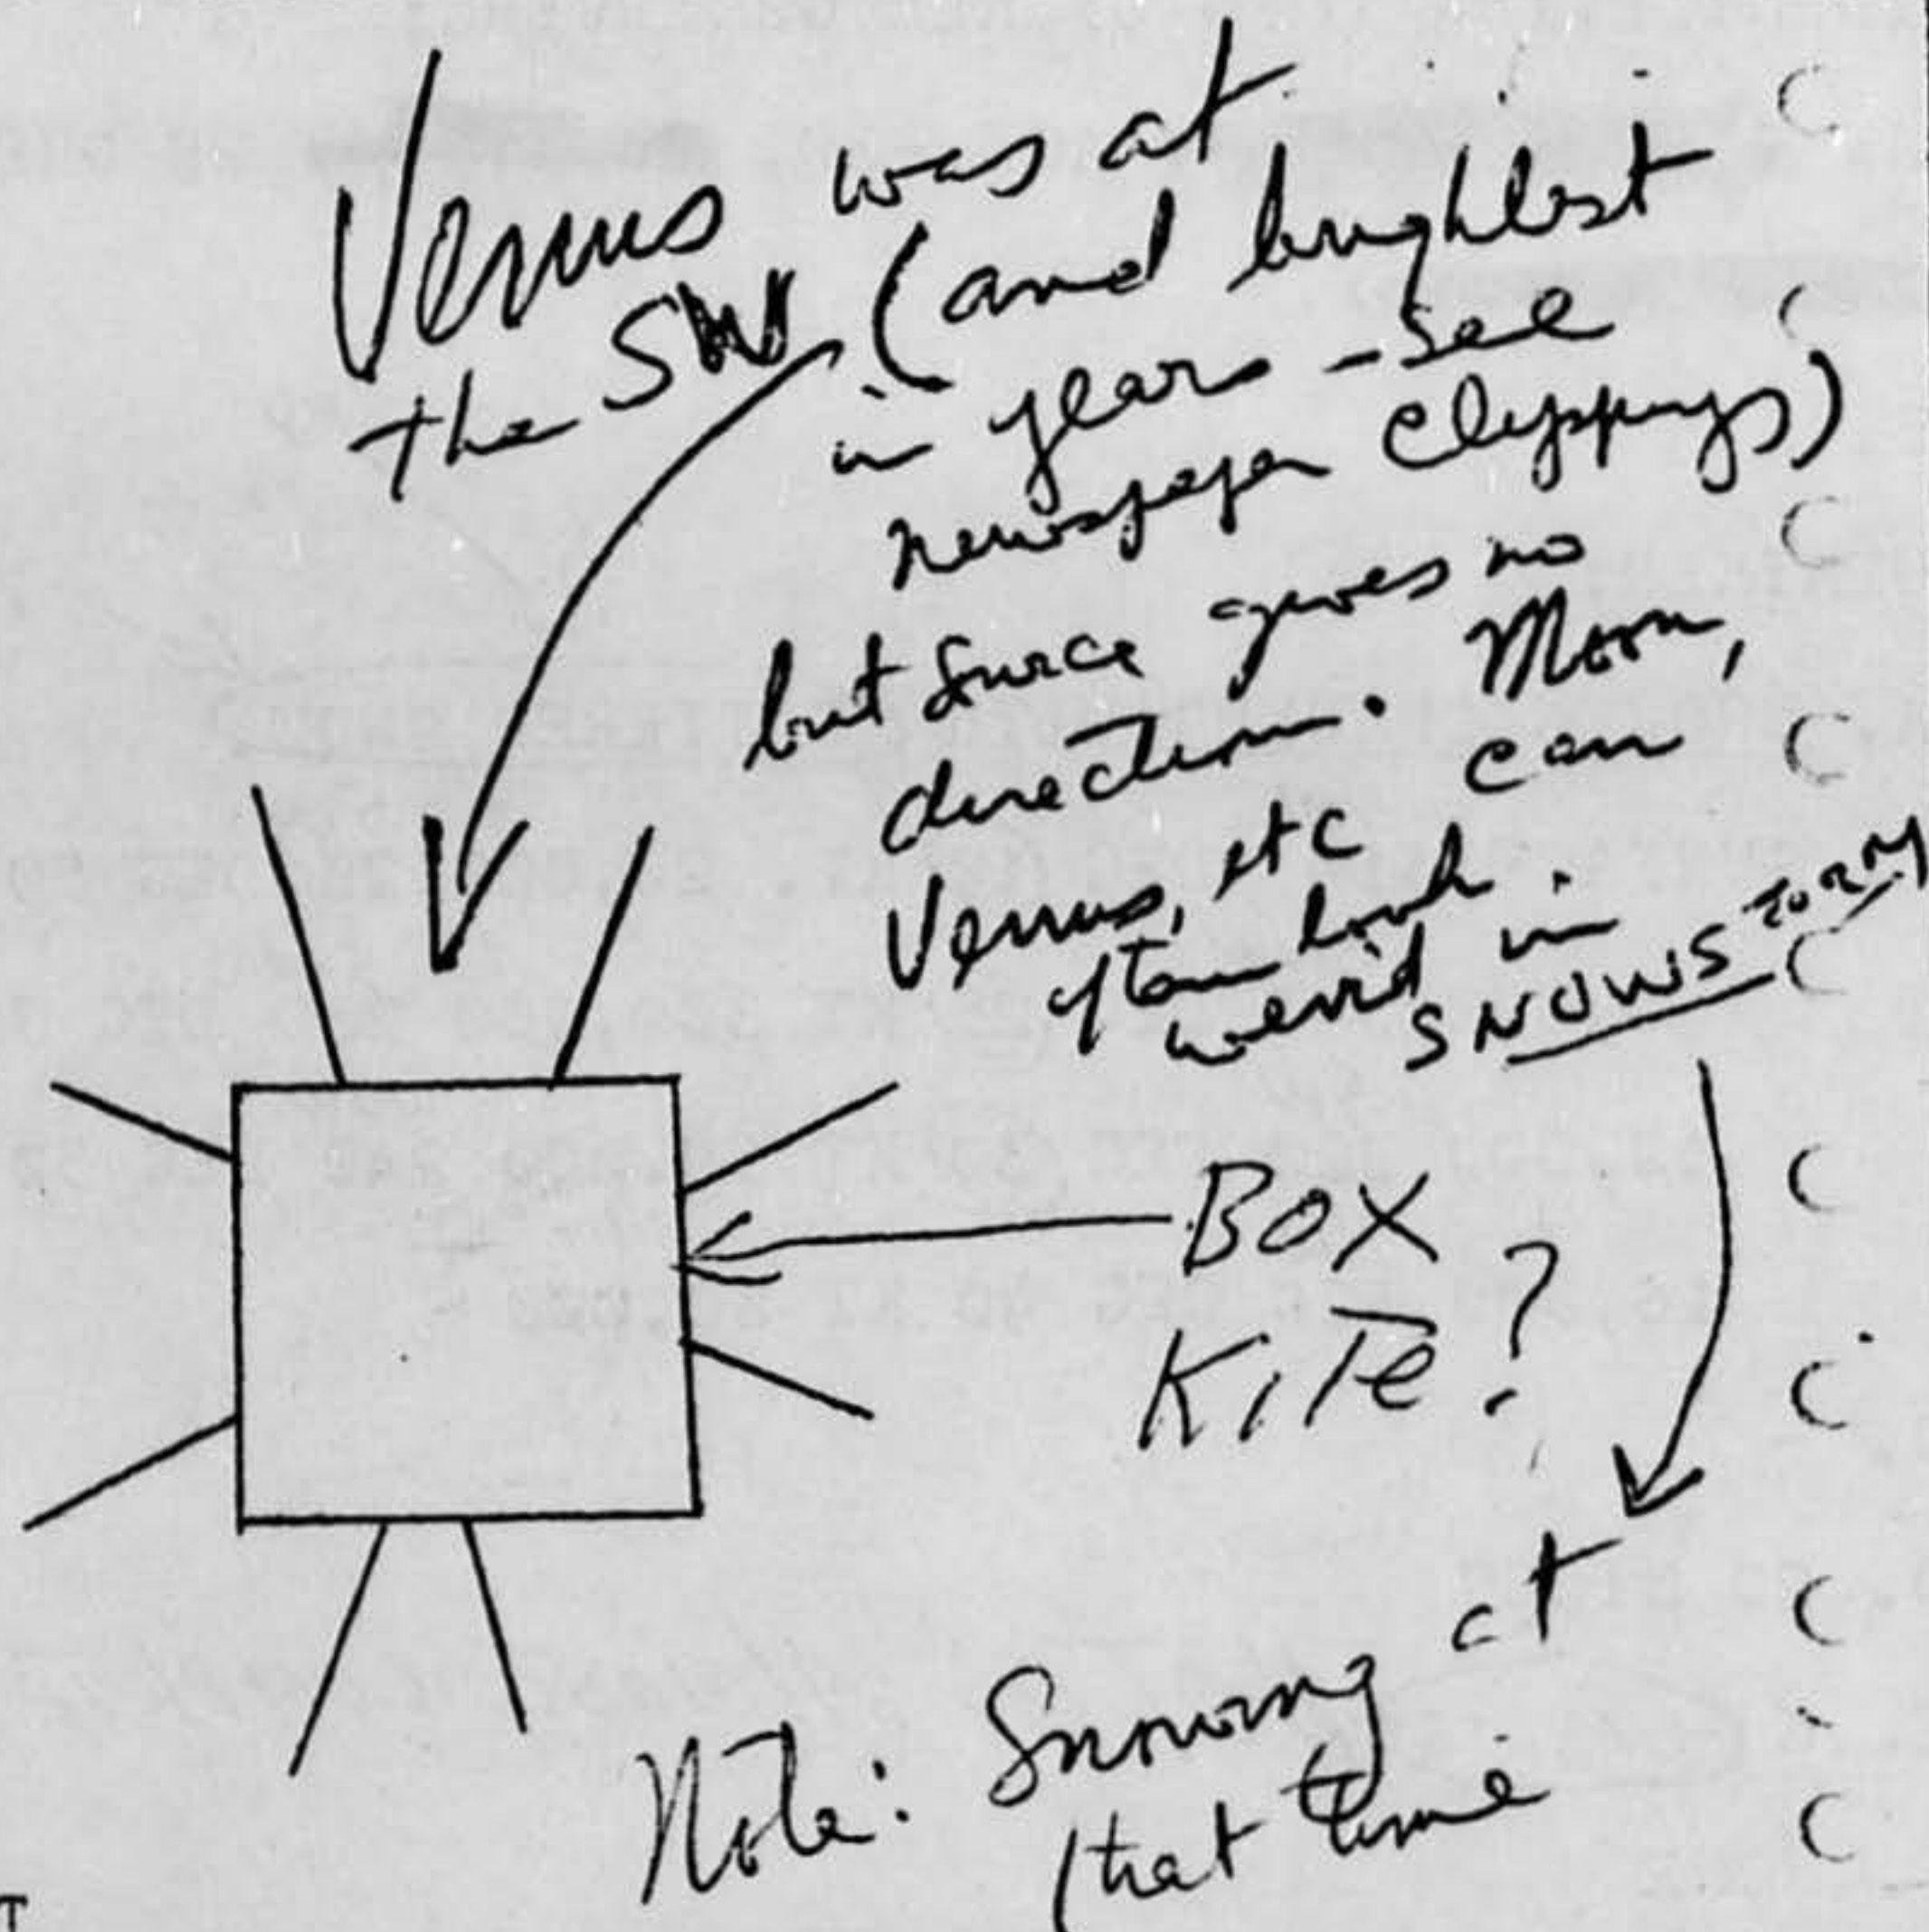 Venus was at
the SW (and brightest
in years - see
newspaper clippings)
but source gives no
direction. Moon,
Venus, etc can
often look
weird in
SNOWSTORM
BOX
KiTe?
Note: Snowing at
that time
T